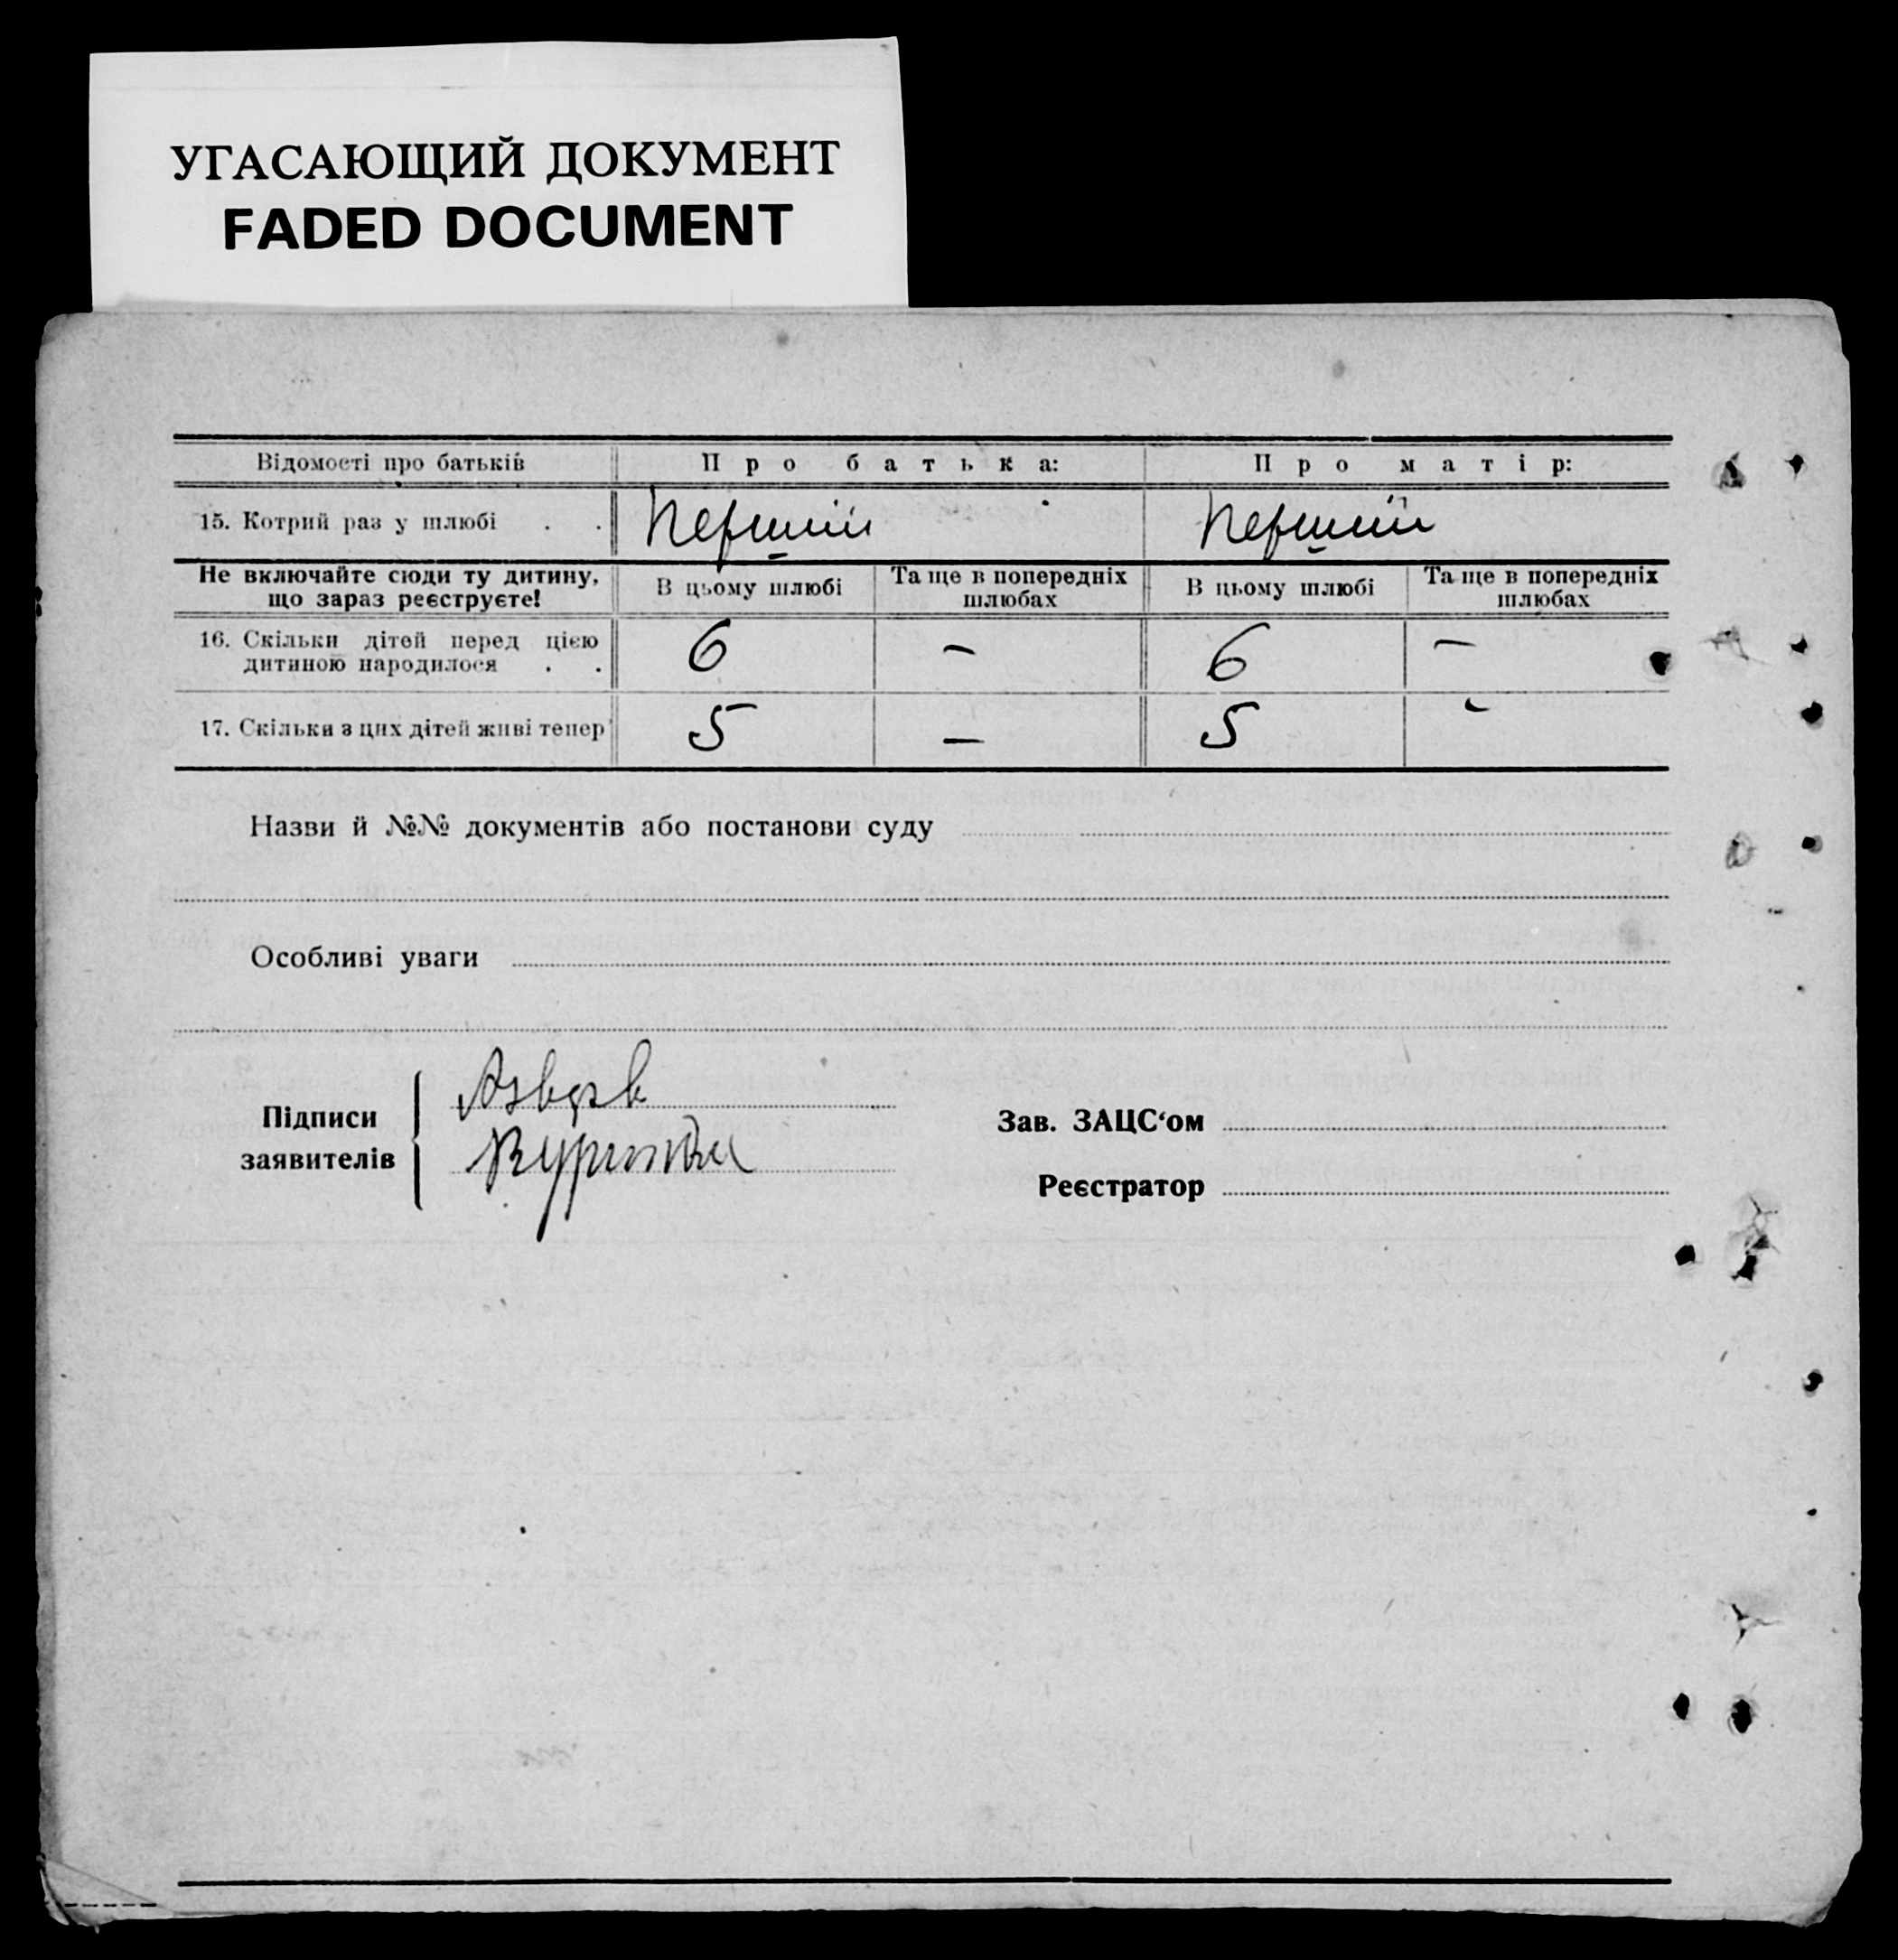 УГАСАЮЩИЙ ДОКУМЕНТ
FADED DOCUMENT
Відомості про батьків Про батька: Про матір:
15. Котрий раз у шлюбі . . Перший Перший
Не включайте сюди ту дитину, що зараз реєструєте! В цьому шлюбі Та ще в попередніх шлюбах В цьому шлюбі Та ще в попередніх шлюбах
16. Скільки дітей перед цією
дитиною народилося . . 6 – 6 –
17. Скільки з цих дітей живі тепер 5 – 5 -
Назви й №№ документів або постанови суду
Особливі уваги
Підписи
заявителів
Зав. ЗАЦС‘ом
Реєстратор